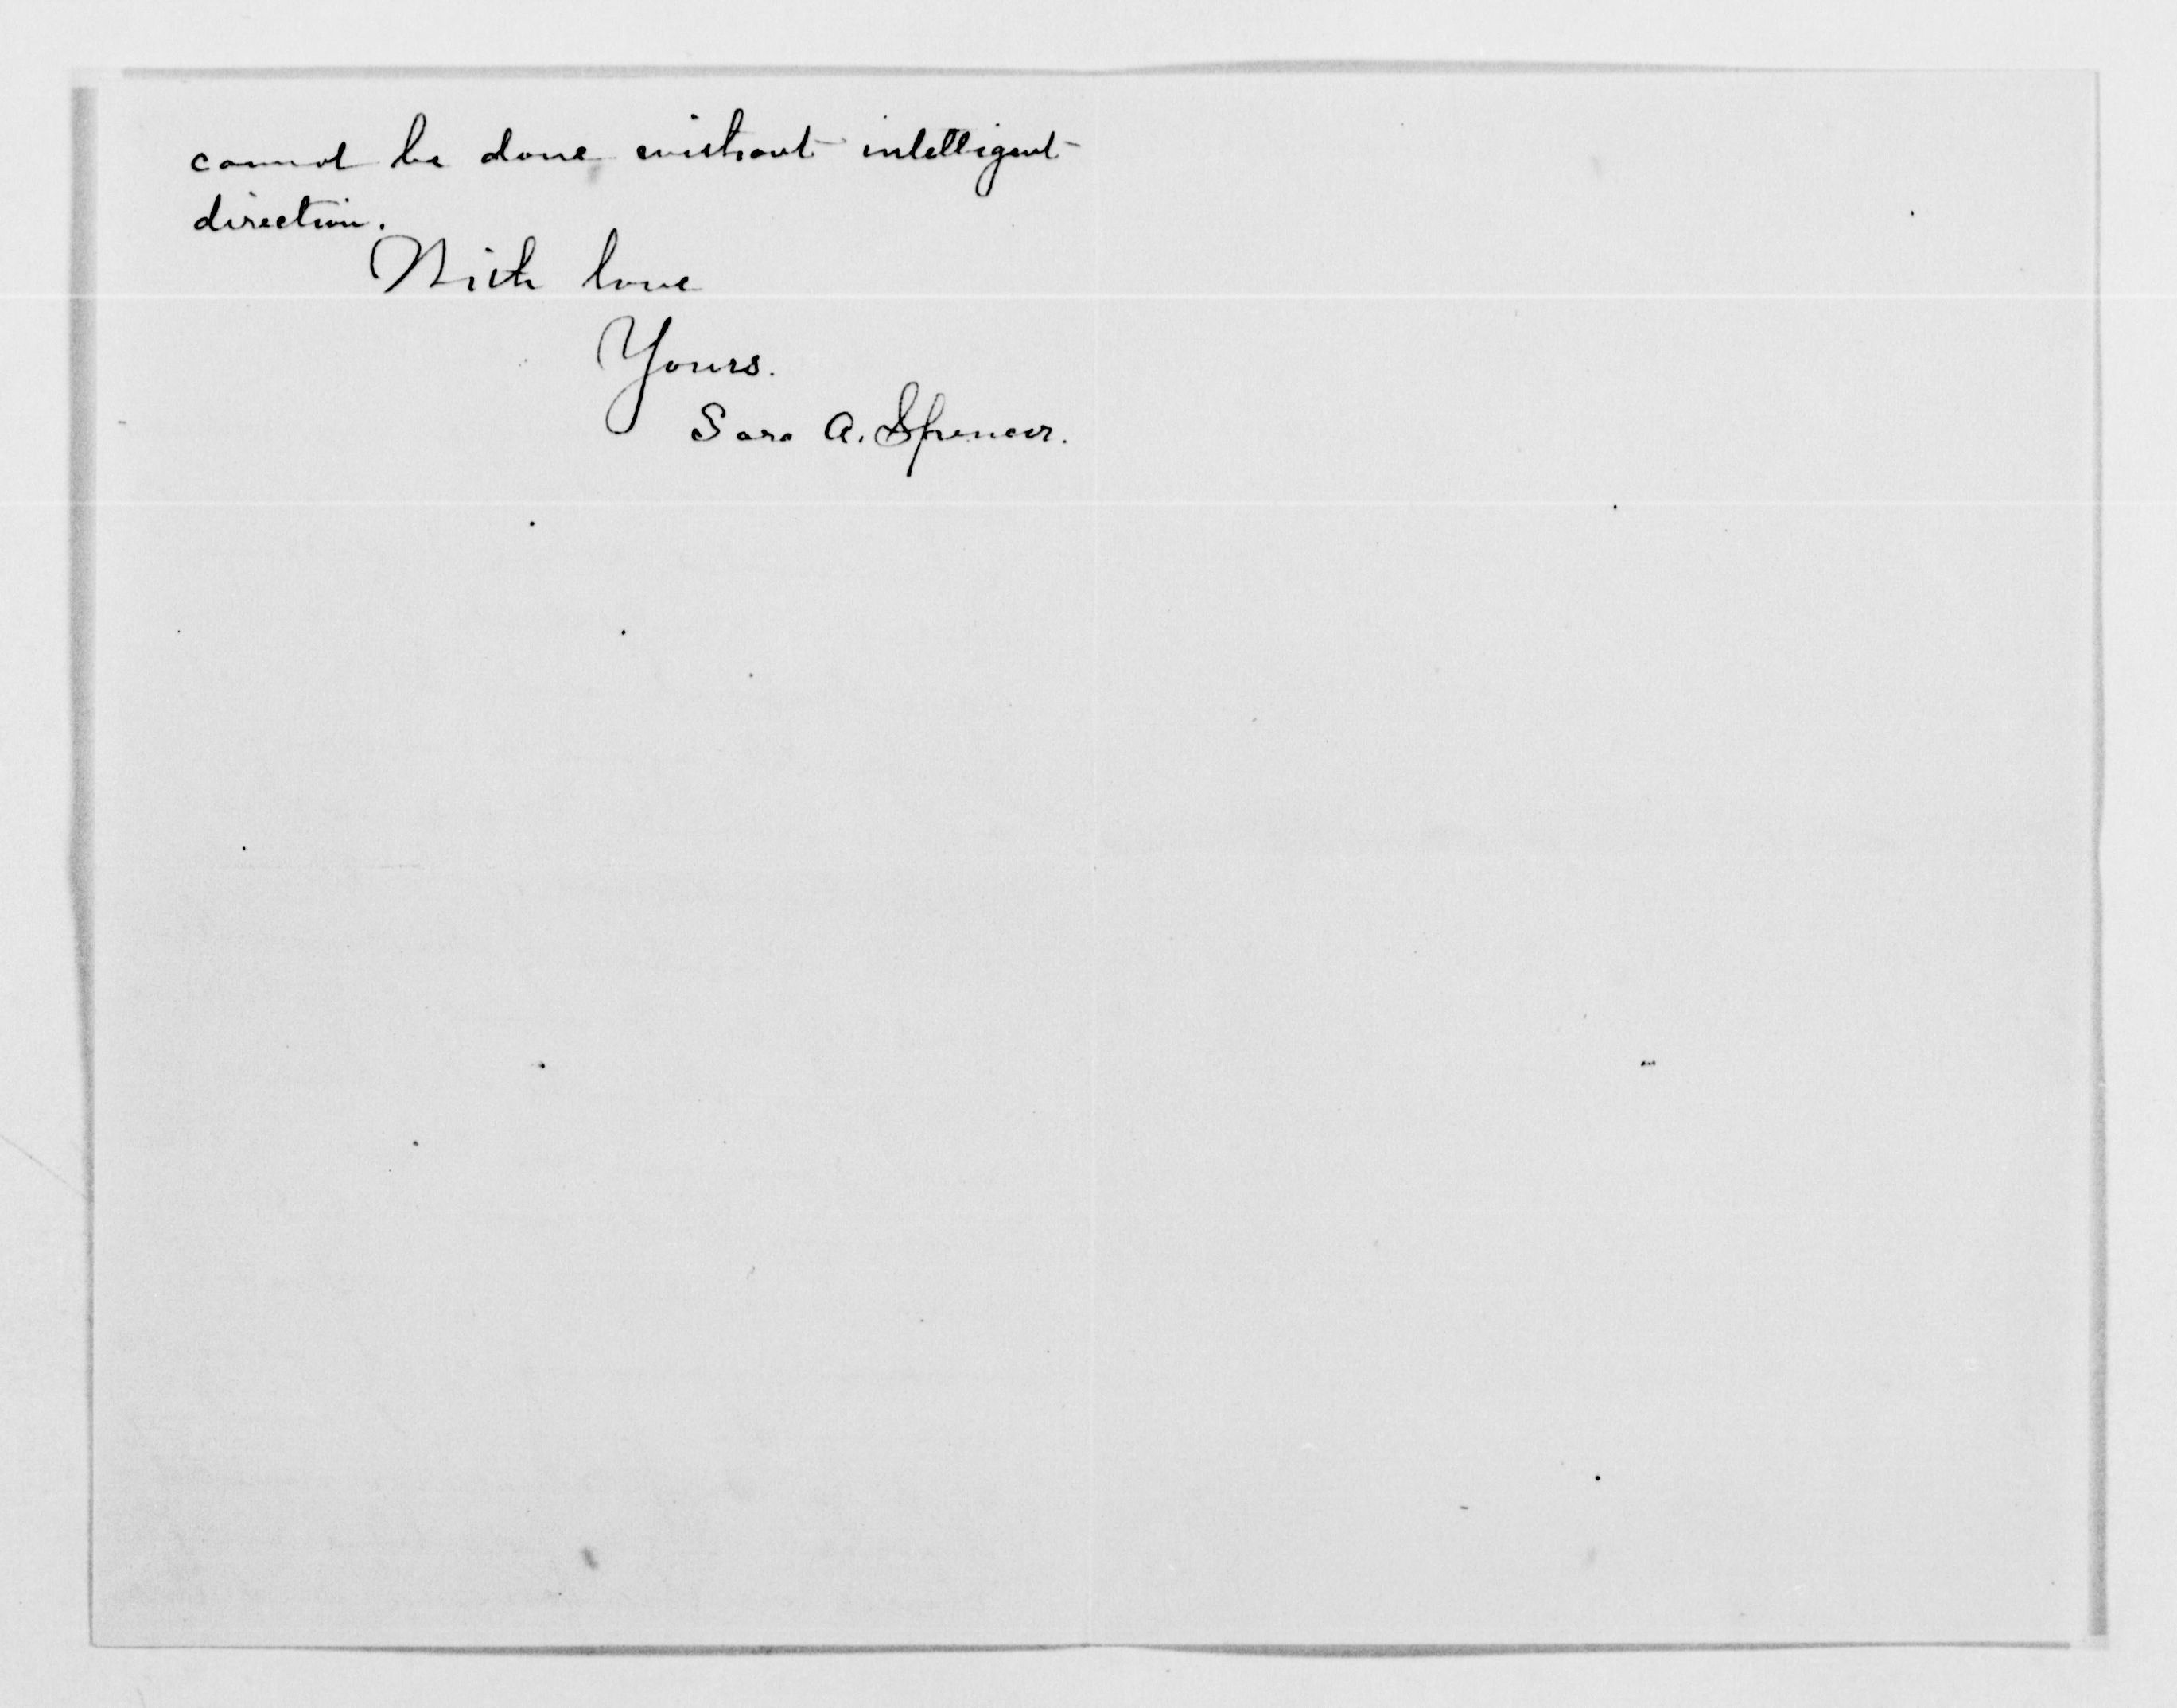 cannot be done without intelligent
direction.
With love
Yours.
Sara A. Spencer.